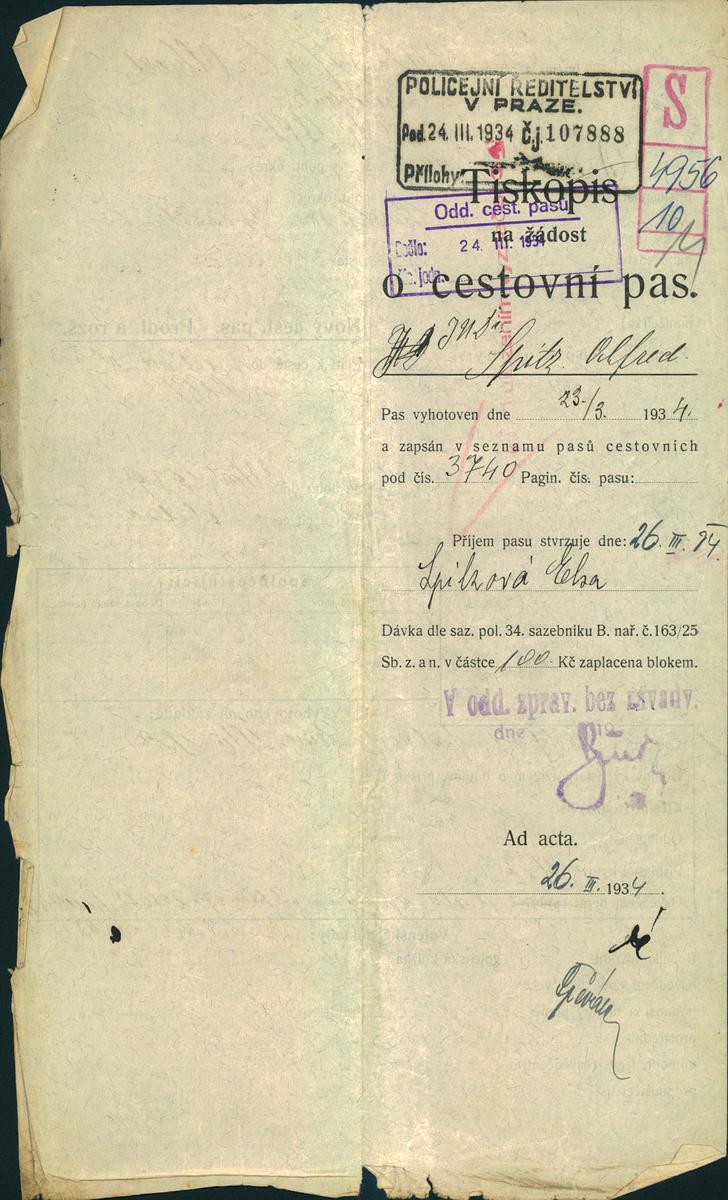 POLICEJNÍ ŘEDITELSTVÍ
V PRAZE.
Pod. 24. III. 1934 Čj. 107888
Přílohy
S
4956
10
Tiskopis
Odd. cest. pasů
na žádost
Došlo: 24. III. 1934
o cestovní pas.
JUDr. Spitz Alfred.
Pas vyhotoven dne 23./3. 1934.
a zapsán v seznamu pasů cestovních
pod čís. 3740 Pagin. čís. pasu:
Příjem pasu stvrzuje dne: 26. III. 34
Spitzová Elsa
Dávka dle saz. pol. 34. sazebníku B. nař. č. 163/25
Sb. z. a n. v částce 100.- Kč zaplacena blokem.
V odd. zprav. bez závady.
dne 19
Ad acta.
26. III. 1934.